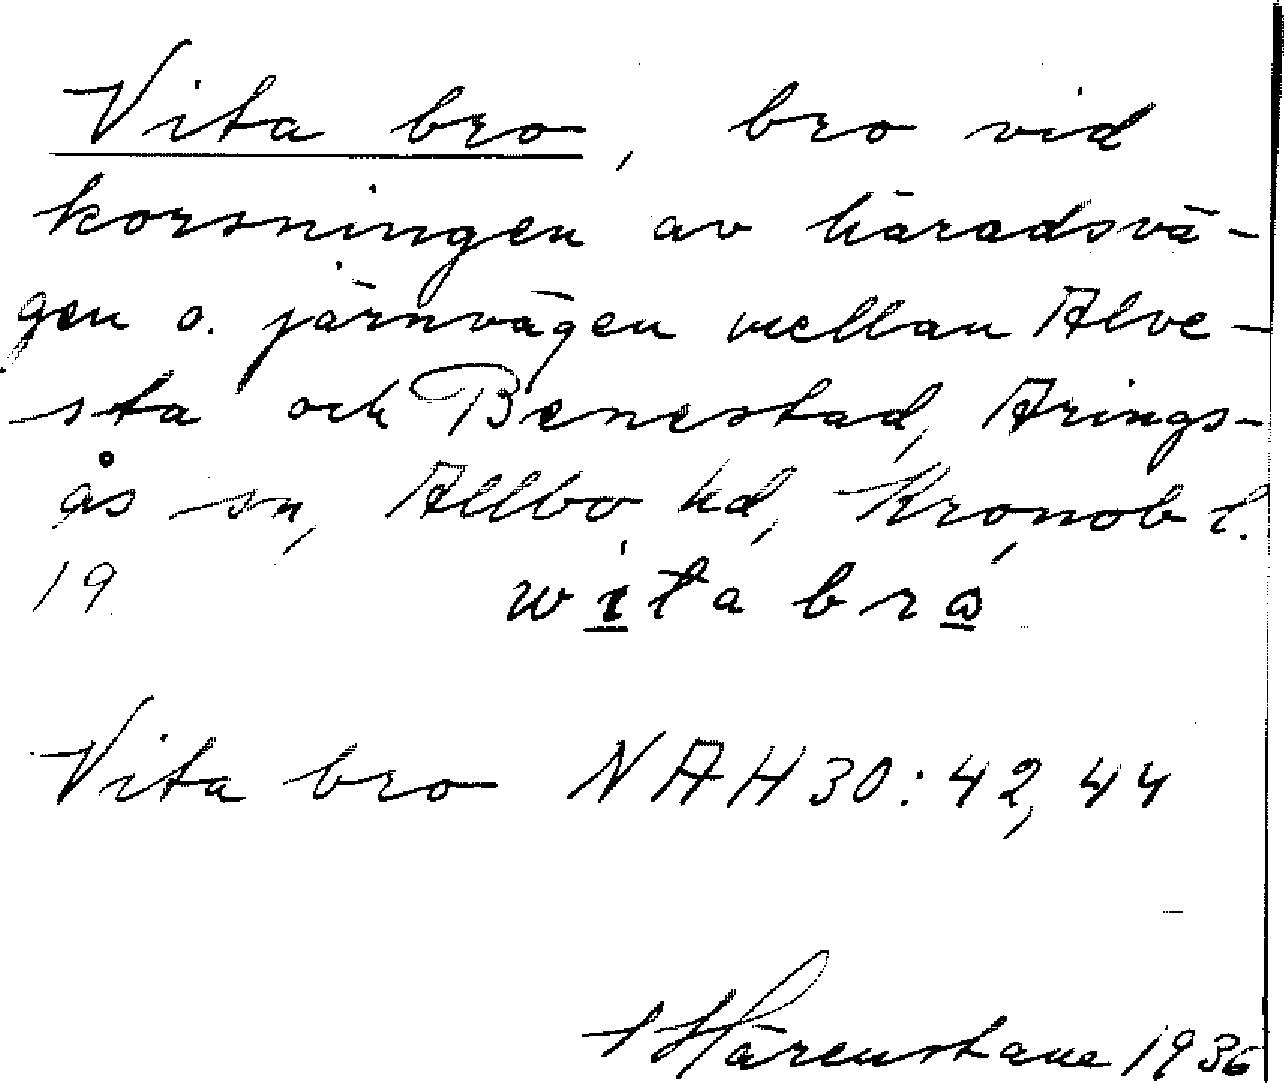 Vita bro, bro vid
korsningen av häradsvä-
gen o. järnvägen mellan Alve-
sta och Benestad, Arings-
ås sn, Allbo hd, Kronob l.
19 wíta bró
Vita bro NAH30:42,44
1936